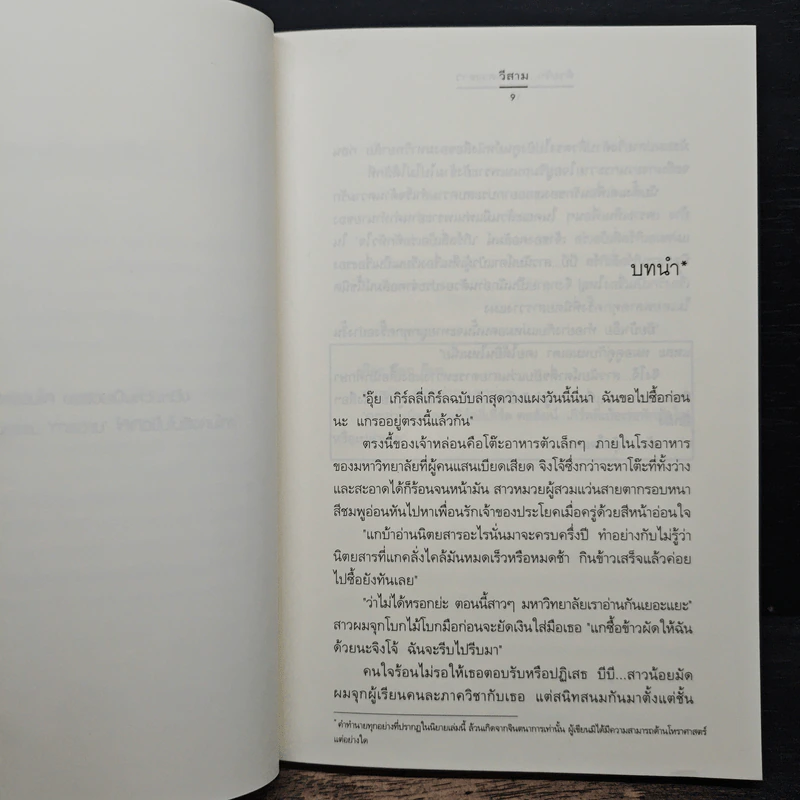 วีสาม
9
บทนำ*
"อุ๊ย เกิร์ลลี่เกิร์ลฉบับล่าสุดวางแผงวันนี้นี่นา ฉันขอไปซื้อก่อน
นะ แกรออยู่ตรงนี้แล้วกัน"
ตรงนี้ของเจ้าหล่อนคือโต๊ะอาหารตัวเล็กๆ ภายในโรงอาหาร
ของมหาวิทยาลัยที่ผู้คนแสนเบียดเสียด จิงโจ้ซึ่งกว่าจะหาโต๊ะที่ทั้งว่าง
และสะอาดได้ก็ร้อนจนหน้ามัน สาวหมวยผู้สวมแว่นสายตากรอบหนา
สีชมพูอ่อนหันไปหาเพื่อนรักเจ้าของประโยคเมื่อครู่ด้วยสีหน้าอ่อนใจ
"แกบ้าอ่านนิตยสารอะไรนั่นมาจะครบครึ่งปี ทำอย่างกับไม่รู้ว่า
นิตยสารที่แกคลั่งไคล้มันหมดเร็วหรือหมดช้า กินข้าวเสร็จแล้วค่อย
ไปซื้อยังทันเลย"
"ว่าไม่ได้หรอกย่ะ ตอนนี้สาวๆ มหาวิทยาลัยเราอ่านกันเยอะแยะ"
สาวผมจุกโบกไม้โบกมือก่อนจะยัดเงินใส่มือเธอ "แกซื้อข้าวผัดให้ฉัน
ด้วยนะจิงโจ้ ฉันจะรีบไปรีบมา"
คนใจร้อนไม่รอให้เธอตอบรับหรือปฏิเสธ บีบี...สาวน้อยมัด
ผมจุกผู้เรียนคนละภาควิชากับเธอ แต่สนิทสนมกันมาตั้งแต่ชั้น
* คำทำนายทุกอย่างที่ปรากฏในนิยายเล่มนี้ ล้วนเกิดจากจินตนาการเท่านั้น ผู้เขียนมิได้มีความสามารถด้านโหราศาสตร์
แต่อย่างใด